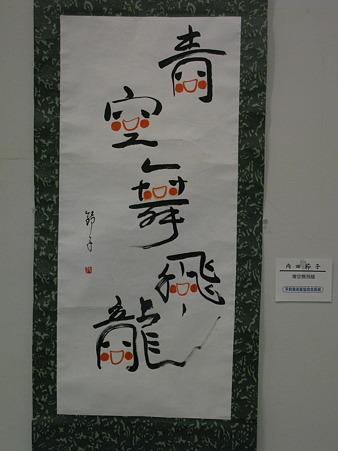 青
空
舞
飛
龍
節子
内田節子
青空舞飛龍